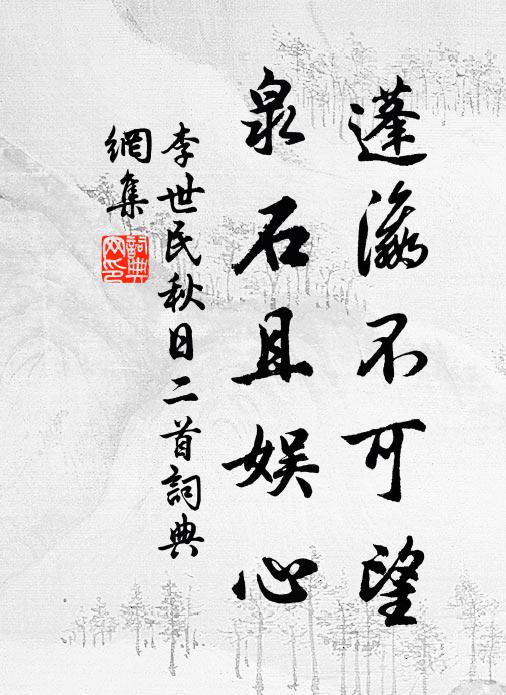 蓬瀛不可望
泉石且娛心
李世民秋日二首詞典
網集
詞典網印